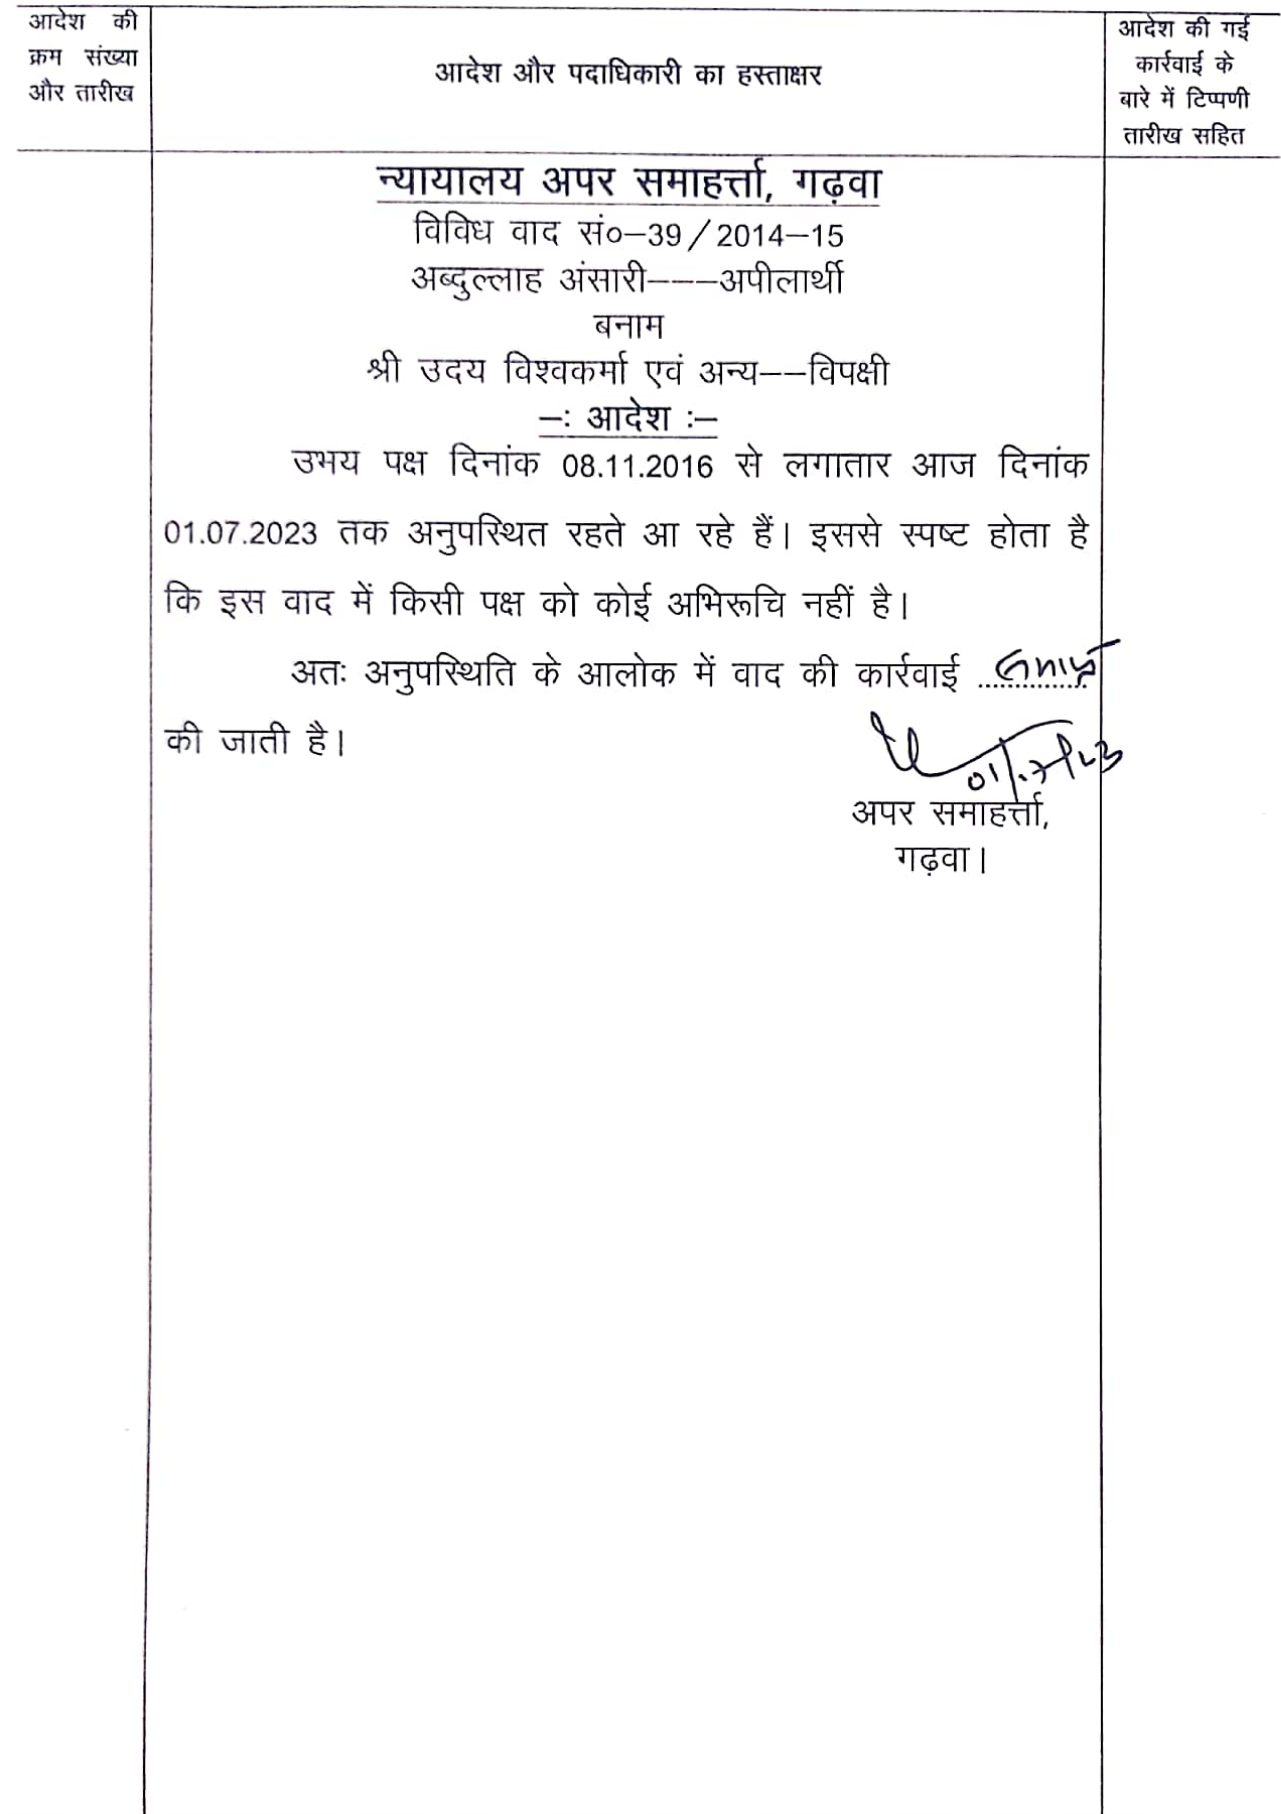 आदेश की
क्रम संख्या
और तारीख
आदेश और पदाधिकारी का हस्ताक्षर
आदेश की गई
कार्रवाई के
बारे में टिप्पणी
तारीख सहित
न्यायालय अपर समाहर्त्ता, गढ़वा
विविध वाद सं०–39/2014–15
अब्दुल्लाह अंसारी–––अपीलार्थी
बनाम
श्री उदय विश्वकर्मा एवं अन्य––विपक्षी
–: आदेश :–
उभय पक्ष दिनांक 08.11.2016 से लगातार आज दिनांक
01.07.2023 तक अनुपस्थित रहते आ रहे हैं। इससे स्पष्ट होता है
कि इस वाद में किसी पक्ष को कोई अभिरूचि नहीं है।
अतः अनुपस्थिति के आलोक में वाद की कार्रवाई समाप्त
की जाती है।
अपर समाहर्त्ता,
गढ़वा।